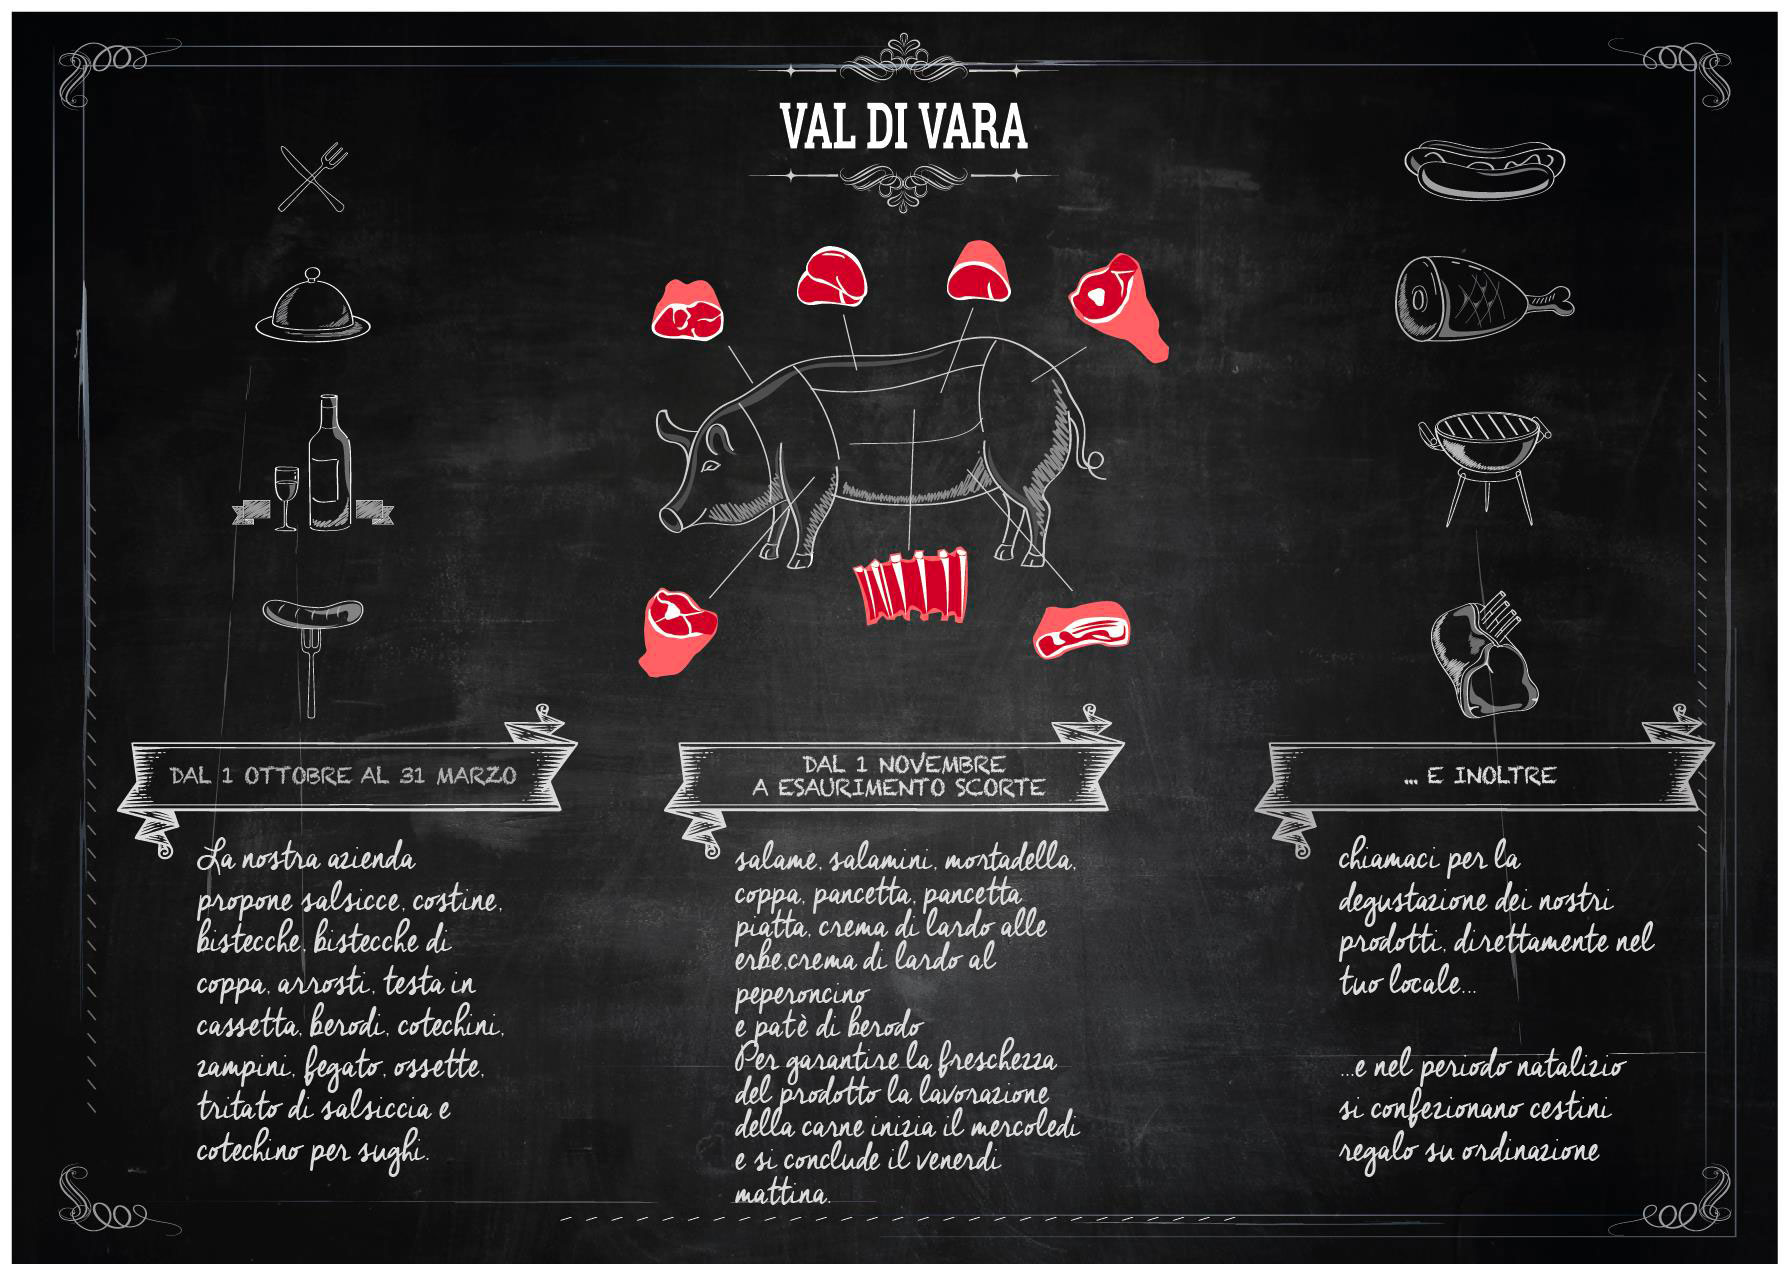 VAL DI VARA
DAL 1 OTTOBRE AL 31 MARZO
La nostra azienda
propone salsicce, costine,
bistecche, bistecche di
coppa, arrosti, testa in
cassetta, berodi, cotechini,
zampini, fegato, ossette,
tritato di salsiccia e
cotechino per sughi.
DAL 1 NOVEMBRE
A ESAURIMENTO SCORTE
salame, salamini, mortadella,
coppa, pancetta, pancetta
piatta, crema di lardo alle
erbe,crema di lardo al
peperoncino
e patè di berodo
Per garantire la freschezza
del prodotto la lavorazione
della carne inizia il mercoledi
e si conclude il venerdi
mattina.
... E INOLTRE
chiamaci per la
degustazione dei nostri
prodotti, direttamente nel
tuo locale...
...e nel periodo natalizio
si confezionano cestini
regalo su ordinazione